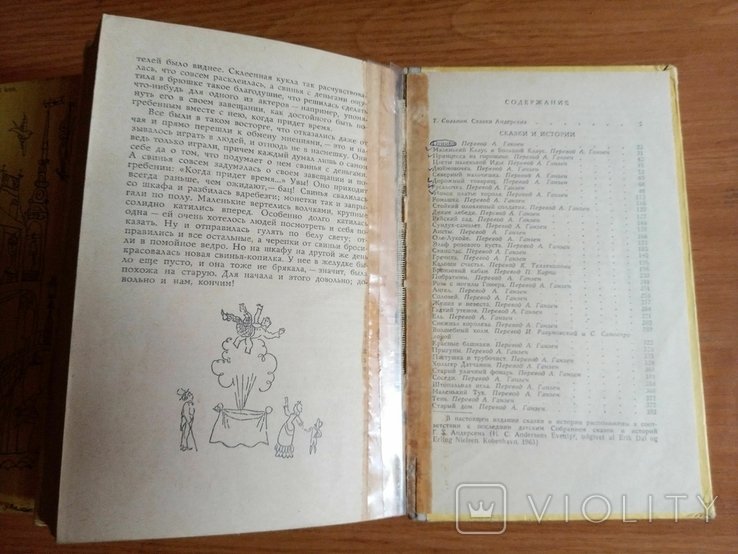 телей было виднее. Склеенная кукла так расчувствова
лась, что совсем расклеилась, а свинья с деньгами ощу
тила в брюшке такое благодушие, что решилась сделать
что-нибудь для одного из актеров — например, упомя
нуть его в своем завещании, как достойного быть по
гребенным вместе с нею, когда придет время.
Все были в таком восторге, что отказались даже от
чая и прямо перешли к обмену мнениями, — это и на
зывалось играть в людей, и отнюдь не в насмешку. Они
ведь только играли, причем каждый думал лишь о самом
себе да о том, что подумает о нем свинья с деньгами.
А свинья совсем задумалась о своем завещании и по
гребении: «Когда придет время...» Увы! Оно приходит
всегда раньше, чем ожидают, — бац! Свинья свалилась
со шкафа и разбилась вдребезги; монетки так и запры
гали по полу. Маленькие вертелись волчками, крупные
солидно катились вперед. Особенно долго катилась
одна — ей очень хотелось людей посмотреть и себя по
казать. Ну и отправилась гулять по белу свету; от
правились и все остальные, а черепки от свиньи броси
ли в помойное ведро. Но на шкафу на другой же день
красовалась новая свинья-копилка. У нее в желудке бы
ло еще пусто, и она тоже не брякала, — значит, была
похожа на старую. Для начала и этого довольно; до
вольно и нам, кончим!
СОДЕРЖАНИЕ
Т. Сильман. Сказки Андерсена 5
СКАЗКИ И ИСТОРИИ
Огниво. Перевод А. Ганзен
Маленький Клаус и Большой Клаус. Перевод А. Ганзен
Принцесса на горошине. Перевод А. Ганзен
Цветы маленькой Иды. Перевод А. Ганзен
Дюймовочка. Перевод А. Ганзен
Скверный мальчишка. Перевод А. Ганзен
Дорожный товарищ. Перевод А. Ганзен
Русалочка. Перевод А. Ганзен
Новое платье короля. Перевод А. Ганзен
Ромашка. Перевод А. Ганзен
Стойкий оловянный солдатик. Перевод А. Ганзен
Дикие лебеди. Перевод А. Ганзен
Райский сад. Перевод А. Ганзен
Сундук-самолет. Перевод А. Ганзен
Аисты. Перевод А. Ганзен
Оле-Лукойе. Перевод А. Ганзен
Эльф розового куста. Перевод А. Ганзен
Свинопас. Перевод А. Ганзен
Гречиха. Перевод А. Ганзен
Калоши счастья. Перевод К. Телятникова
Бронзовый кабан. Перевод П. Карпа
Побратимы. Перевод А. Ганзен
Роза с могилы Гомера. Перевод А. Ганзен
Ангел. Перевод А. Ганзен
Соловей. Перевод А. Ганзен
Жених и невеста. Перевод А. Ганзен
Гадкий утенок. Перевод А. Ганзен
Ель. Перевод А. Ганзен
Снежная королева. Перевод А. Ганзен
Волшебный холм. Перевод И. Разумовской и С. Самостре
ловой
Красные башмаки. Перевод А. Ганзен
Прыгуны. Перевод А. Ганзен
Пастушка и трубочист. Перевод А. Ганзен
Хольгер Датчанин. Перевод А. Ганзен
Старый уличный фонарь. Перевод А. Ганзен
Соседи. Перевод А. Ганзен
Штопальная игла. Перевод А. Ганзен
Маленький Тук. Перевод А. Ганзен
Тень. Перевод А. Ганзен
Старый дом. Перевод А. Ганзен
В настоящем издании сказки и истории расположены в соот
ветствии к последним датским Собранием сказок и историй
Г. Х. Андерсена (H. C. Andersens Eventyr, udgivet af Erik Dal og
Erling Nielsen. København, 1963)
VIOLITY